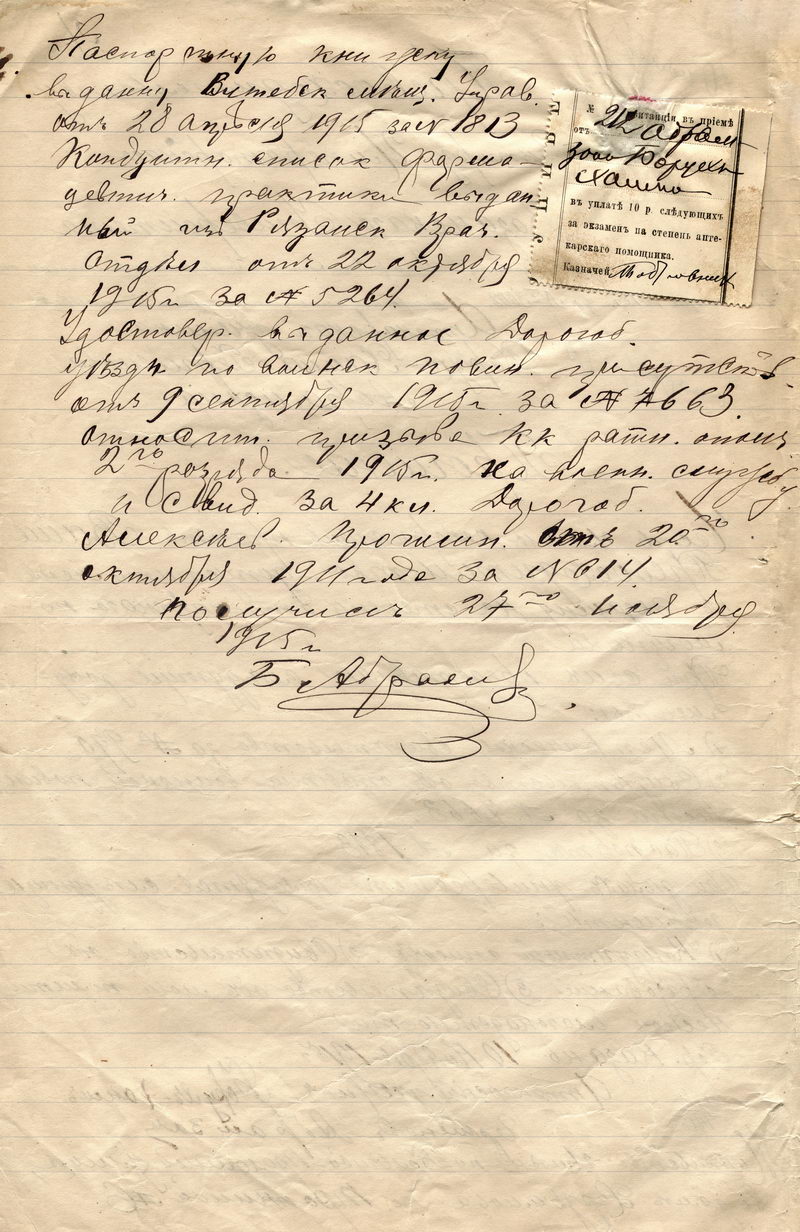 Паспортную книжку
выданну Витебск мѣщ. Управ.
отъ 28 апрѣля 1915 за N 1813
Кондуитн. список Фарма-
цевтич. практики выдан
ный изъ Рязанск Врач.
Отдѣл отъ 22 октября
1915г за № 5264.
Удостовер. выданное Дорогоб.
уѣздн по воинск повин. присутств.
отъ 9 сентября 1915г. за №
относит. призыва ратн. ополч.
2го разряда 1915г. на военн. службу
и Свид. за 4 кл. Дорогоб.
Алексѣев. Прогимн. отъ 20го
октября 1911 года за N 614.
получилъ 27го Ноября
1915г
Б. Абрамзон
№ 212 квитанціи въ пріемѣ
отъ Абрам
зона Боруха
въ уплатѣ 10 р. слѣдующихъ
за экзаменъ на степень апте-
карскаго помощника.
Казначей